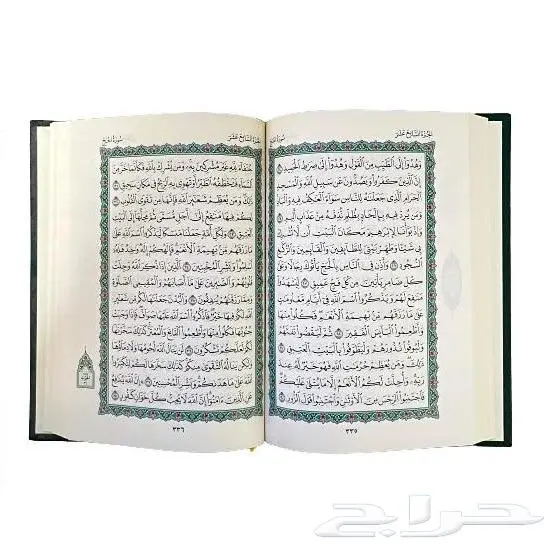 الجزء السابع عشر
سورة الحج
وَهُدُوٓا۟ إِلَى ٱلطَّيِّبِ مِنَ ٱلْقَوْلِ وَهُدُوٓا۟ إِلَىٰ صِرَٰطِ ٱلْحَمِيدِ ٢٤
إِنَّ ٱلَّذِينَ كَفَرُوا۟ وَيَصُدُّونَ عَن سَبِيلِ ٱللَّهِ وَٱلْمَسْجِدِ
ٱلْحَرَامِ ٱلَّذِى جَعَلْنَٰهُ لِلنَّاسِ سَوَآءً ٱلْعَٰكِفُ فِيهِ وَٱلْبَادِ
وَمَن يُرِدْ فِيهِ بِإِلْحَادٍۭ بِظُلْمٍ نُّذِقْهُ مِنْ عَذَابٍ أَلِيمٍ ٢٥
وَإِذْ بَوَّأْنَا لِإِبْرَٰهِيمَ مَكَانَ ٱلْبَيْتِ أَن لَّا تُشْرِكْ
بِى شَيْـًٔا وَطَهِّرْ بَيْتِىَ لِلطَّآئِفِينَ وَٱلْقَآئِمِينَ وَٱلرُّكَّعِ
ٱلسُّجُودِ ٢٦ وَأَذِّن فِى ٱلنَّاسِ بِٱلْحَجِّ يَأْتُوكَ رِجَالًا وَعَلَىٰ
كُلِّ ضَامِرٍ يَأْتِينَ مِن كُلِّ فَجٍّ عَمِيقٍ ٢٧ لِّيَشْهَدُوا۟
مَنَٰفِعَ لَهُمْ وَيَذْكُرُوا۟ ٱسْمَ ٱللَّهِ فِىٓ أَيَّامٍ مَّعْلُومَٰتٍ
عَلَىٰ مَا رَزَقَهُم مِّنۢ بَهِيمَةِ ٱلْأَنْعَٰمِ فَكُلُوا۟ مِنْهَا
وَأَطْعِمُوا۟ ٱلْبَآئِسَ ٱلْفَقِيرَ ٢٨ ثُمَّ لْيَقْضُوا۟ تَفَثَهُمْ
وَلْيُوفُوا۟ نُذُورَهُمْ وَلْيَطَّوَّفُوا۟ بِٱلْبَيْتِ ٱلْعَتِيقِ ٢٩
ذَٰلِكَ وَمَن يُعَظِّمْ حُرُمَٰتِ ٱللَّهِ فَهُوَ خَيْرٌ لَّهُۥ عِندَ
رَبِّهِۦ وَأُحِلَّتْ لَكُمُ ٱلْأَنْعَٰمُ إِلَّا مَا يُتْلَىٰ عَلَيْكُمْ
فَٱجْتَنِبُوا۟ ٱلرِّجْسَ مِنَ ٱلْأَوْثَٰنِ وَٱجْتَنِبُوا۟ قَوْلَ ٱلزُّورِ ٣٠
٣٣٥
الجزء السابع عشر
سورة الحج
حُنَفَآءَ لِلَّهِ غَيْرَ مُشْرِكِينَ بِهِۦ وَمَن يُشْرِكْ بِٱللَّهِ فَكَأَنَّمَا خَرَّ مِنَ
ٱلسَّمَآءِ فَتَخْطَفُهُ ٱلطَّيْرُ أَوْ تَهْوِى بِهِ ٱلرِّيحُ فِى مَكَانٍ سَحِيقٍ ٣١
ذَٰلِكَ وَمَن يُعَظِّمْ شَعَٰٓئِرَ ٱللَّهِ فَإِنَّهَا مِن تَقْوَى ٱلْقُلُوبِ ٣٢
لَكُمْ فِيهَا مَنَٰفِعُ إِلَىٰٓ أَجَلٍ مُّسَمًّى ثُمَّ مَحِلُّهَآ إِلَى ٱلْبَيْتِ
ٱلْعَتِيقِ ٣٣ وَلِكُلِّ أُمَّةٍ جَعَلْنَا مَنسَكًا لِّيَذْكُرُوا۟ ٱسْمَ ٱللَّهِ عَلَىٰ
مَا رَزَقَهُم مِّنۢ بَهِيمَةِ ٱلْأَنْعَٰمِ فَإِلَٰهُكُمْ إِلَٰهٌ وَٰحِدٌ فَلَهُۥٓ
أَسْلِمُوا۟ وَبَشِّرِ ٱلْمُخْبِتِينَ ٣٤ ٱلَّذِينَ إِذَا ذُكِرَ ٱللَّهُ وَجِلَتْ
قُلُوبُهُمْ وَٱلصَّٰبِرِينَ عَلَىٰ مَآ أَصَابَهُمْ وَٱلْمُقِيمِى ٱلصَّلَوٰةِ
وَمِمَّا رَزَقْنَٰهُمْ يُنفِقُونَ ٣٥ وَٱلْبُدْنَ جَعَلْنَٰهَا لَكُم مِّن شَعَٰٓئِرِ
ٱللَّهِ لَكُمْ فِيهَا خَيْرٌ فَٱذْكُرُوا۟ ٱسْمَ ٱللَّهِ عَلَيْهَا صَوَآفَّ فَإِذَا وَجَبَتْ
جُنُوبُهَا فَكُلُوا۟ مِنْهَا وَأَطْعِمُوا۟ ٱلْقَانِعَ وَٱلْمُعْتَرَّ كَذَٰلِكَ سَخَّرْنَٰهَا
لَكُمْ لَعَلَّكُمْ تَشْكُرُونَ ٣٦ لَن يَنَالَ ٱللَّهَ لُحُومُهَا وَلَا دِمَآؤُهَا
وَلَٰكِن يَنَالُهُ ٱلتَّقْوَىٰ مِنكُمْ كَذَٰلِكَ سَخَّرَهَا لَكُمْ لِتُكَبِّرُوا۟
ٱللَّهَ عَلَىٰ مَا هَدَىٰكُمْ وَبَشِّرِ ٱلْمُحْسِنِينَ ٣٧ إِنَّ ٱللَّهَ يُدَٰفِعُ
عَنِ ٱلَّذِينَ ءَامَنُوٓا۟ إِنَّ ٱللَّهَ لَا يُحِبُّ كُلَّ خَوَّانٍ كَفُورٍ ٣٨
٣٣٦
حراج